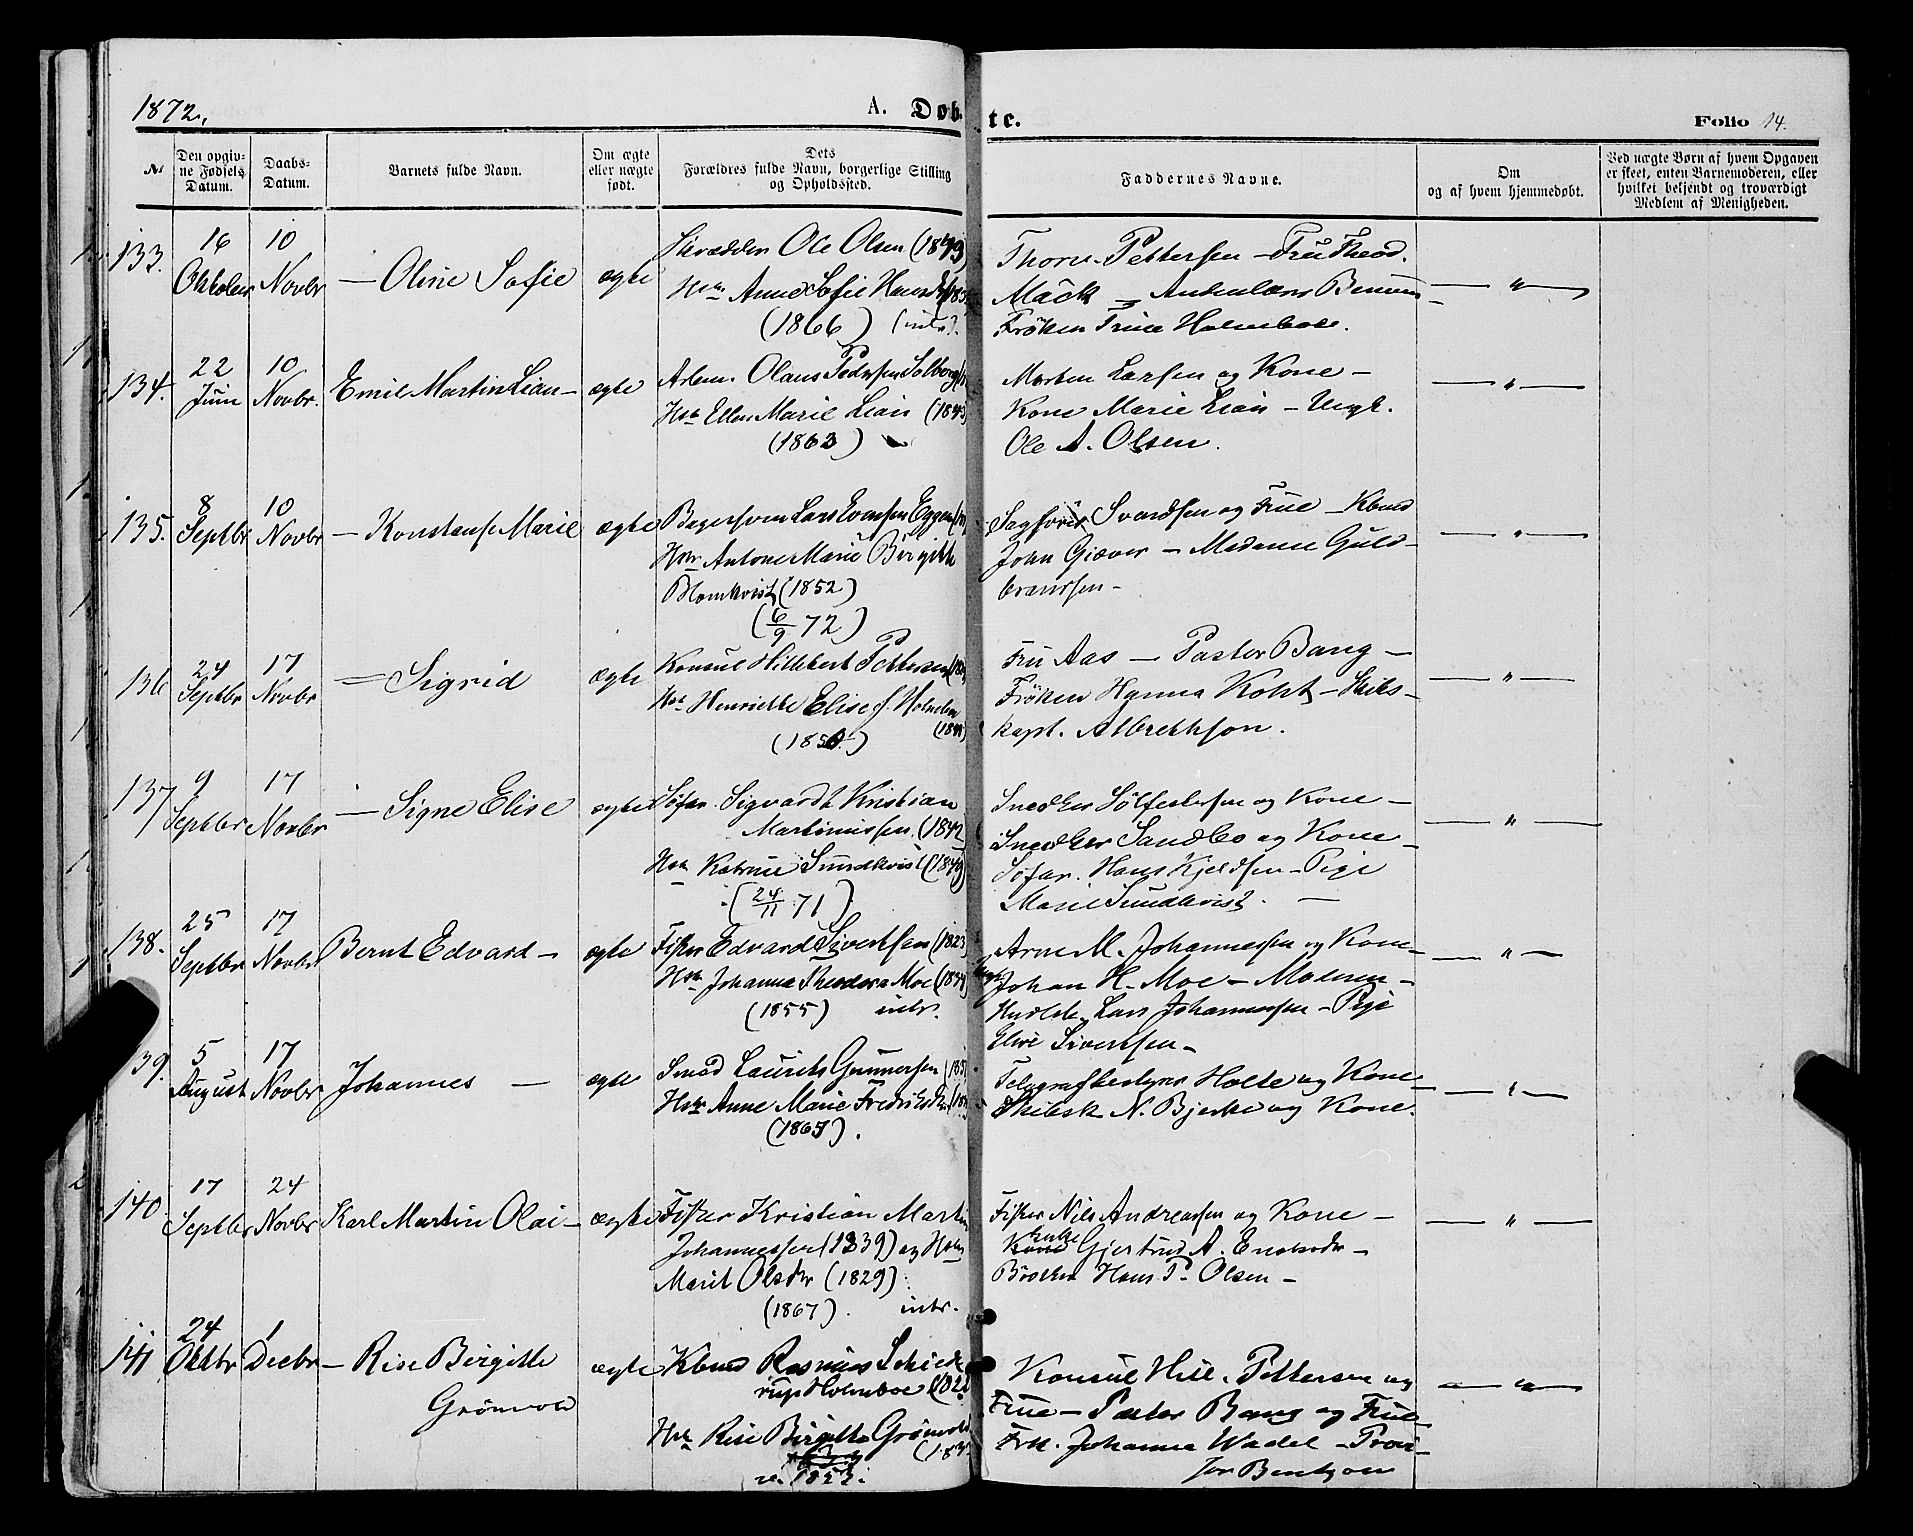 1872.
A. Døbte.
Folio 14.
No
Den opgivne Fødsels Datum.
Daabs-Datum.
Barnets fulde Navn.
Om ægte eller uægte født.
Dets Forældres fulde Navn, borgerlige Stilling og Opholdssted.
Faddernes Navne.
Om og af hvem hjemmedøbt.
Ved uægte Børn af hvem Opgaven er skeet, enten Barnemoderen, eller hvilket bekjendt og troværdigt Medlem af Menigheden.
133. 16 Oktober 10 Novbr — Oline Sofie ægte
Skrædder Ole Olsen (1849)
Hstr Anne Sofie Hansdtr
(1866) (intr.)
Thorv. Pettersen — Fru Theod.
Mack —
Frøken Trine Holmboe.
— " —
134. 22 Juni 10 Novbr. Emil Martin Lian — ægte
Arbm. Olaus Pedersen Solberg
Hstr Ellen Marie Lian (1843)
(1863)
Morten Larsen og Kone —
Kone Marie Lian — Ungk.
Ole A. Olsen.
— " —
135. 8 Septbr 10 Novbr — Konstanse Marie ægte
Bagersvend Lars Evensen Eggen
Hstr Antone Marie Birgitte
Blomkvist (1852)
(6/9 72)
Sagfører Svendsen og Frue — Kbmd
John Giæver — Madame Guld-
brandsen —
— " —
136 24 Septbr 17 Novbr — Sigrid ægte
Konsul Hillebert Pettersen
Hstr Henriette Elise f. Holmboe
(1850)
Fru Aas — Pastor Bang —
Frøken Hanna Koht — Skibs-
kapt. Albrektson.
— " —
137 9 Septbr 17 Novbr — Signe Elise ægte
Søfar. Sigvardt Kristian
Martinussen (1842
Hstr Katrine Sundkvist (1849)
(24/11 71)
Snedker Sølfestersen og Kone —
Snedker Sandbo og Kone —
Søfar. Hans Kjeldsen — Pige
Marie Sundkvist. —
— " —
138. 25 Septbr 17 Novbr Bernt Edvard — ægte
Fisker Edvard Sivertsen (1823
Hstr Johanna Theodora Moe
(1855) intr.
Arne M. Johannessen og Kone —
Johan H. Moe —
Lars Johannessen — Pige
Eline Sivertsen —
— " —
39. 5 August 17 Novbr Johannes — ægte
Smed Laurits Gunnersen
Hstr Anne Marie Fredriksdtr
Telegrafbestyrer Holte og Kone —
Skibsk N. Bjerke og Kone.
— " —
140 17 Septbr 24 Novbr Karl Martin Olai — ægte
Fisker Kristian Martin
Johannessen (1839) og Hstr
Marit Olsdtr (1829)
(1867). intr.
Fisker Nils Andreassen og Kone —
Enke Gjertrud A.
Hans P. Olsen —
— " —
141 24 Oktbr 1 Decbr — Rise Birgitte
Grönvold ægte
Kbmd Rasmus Schjelde-
rup Holmboe
Hstr Rise Birgitte Grönvold
1853.
Konsul Hill. Pettersen og
Frue — Pastor Bang og Frue
Frk. Johanna Wadel — Provi-
sor Bentzon
— " —